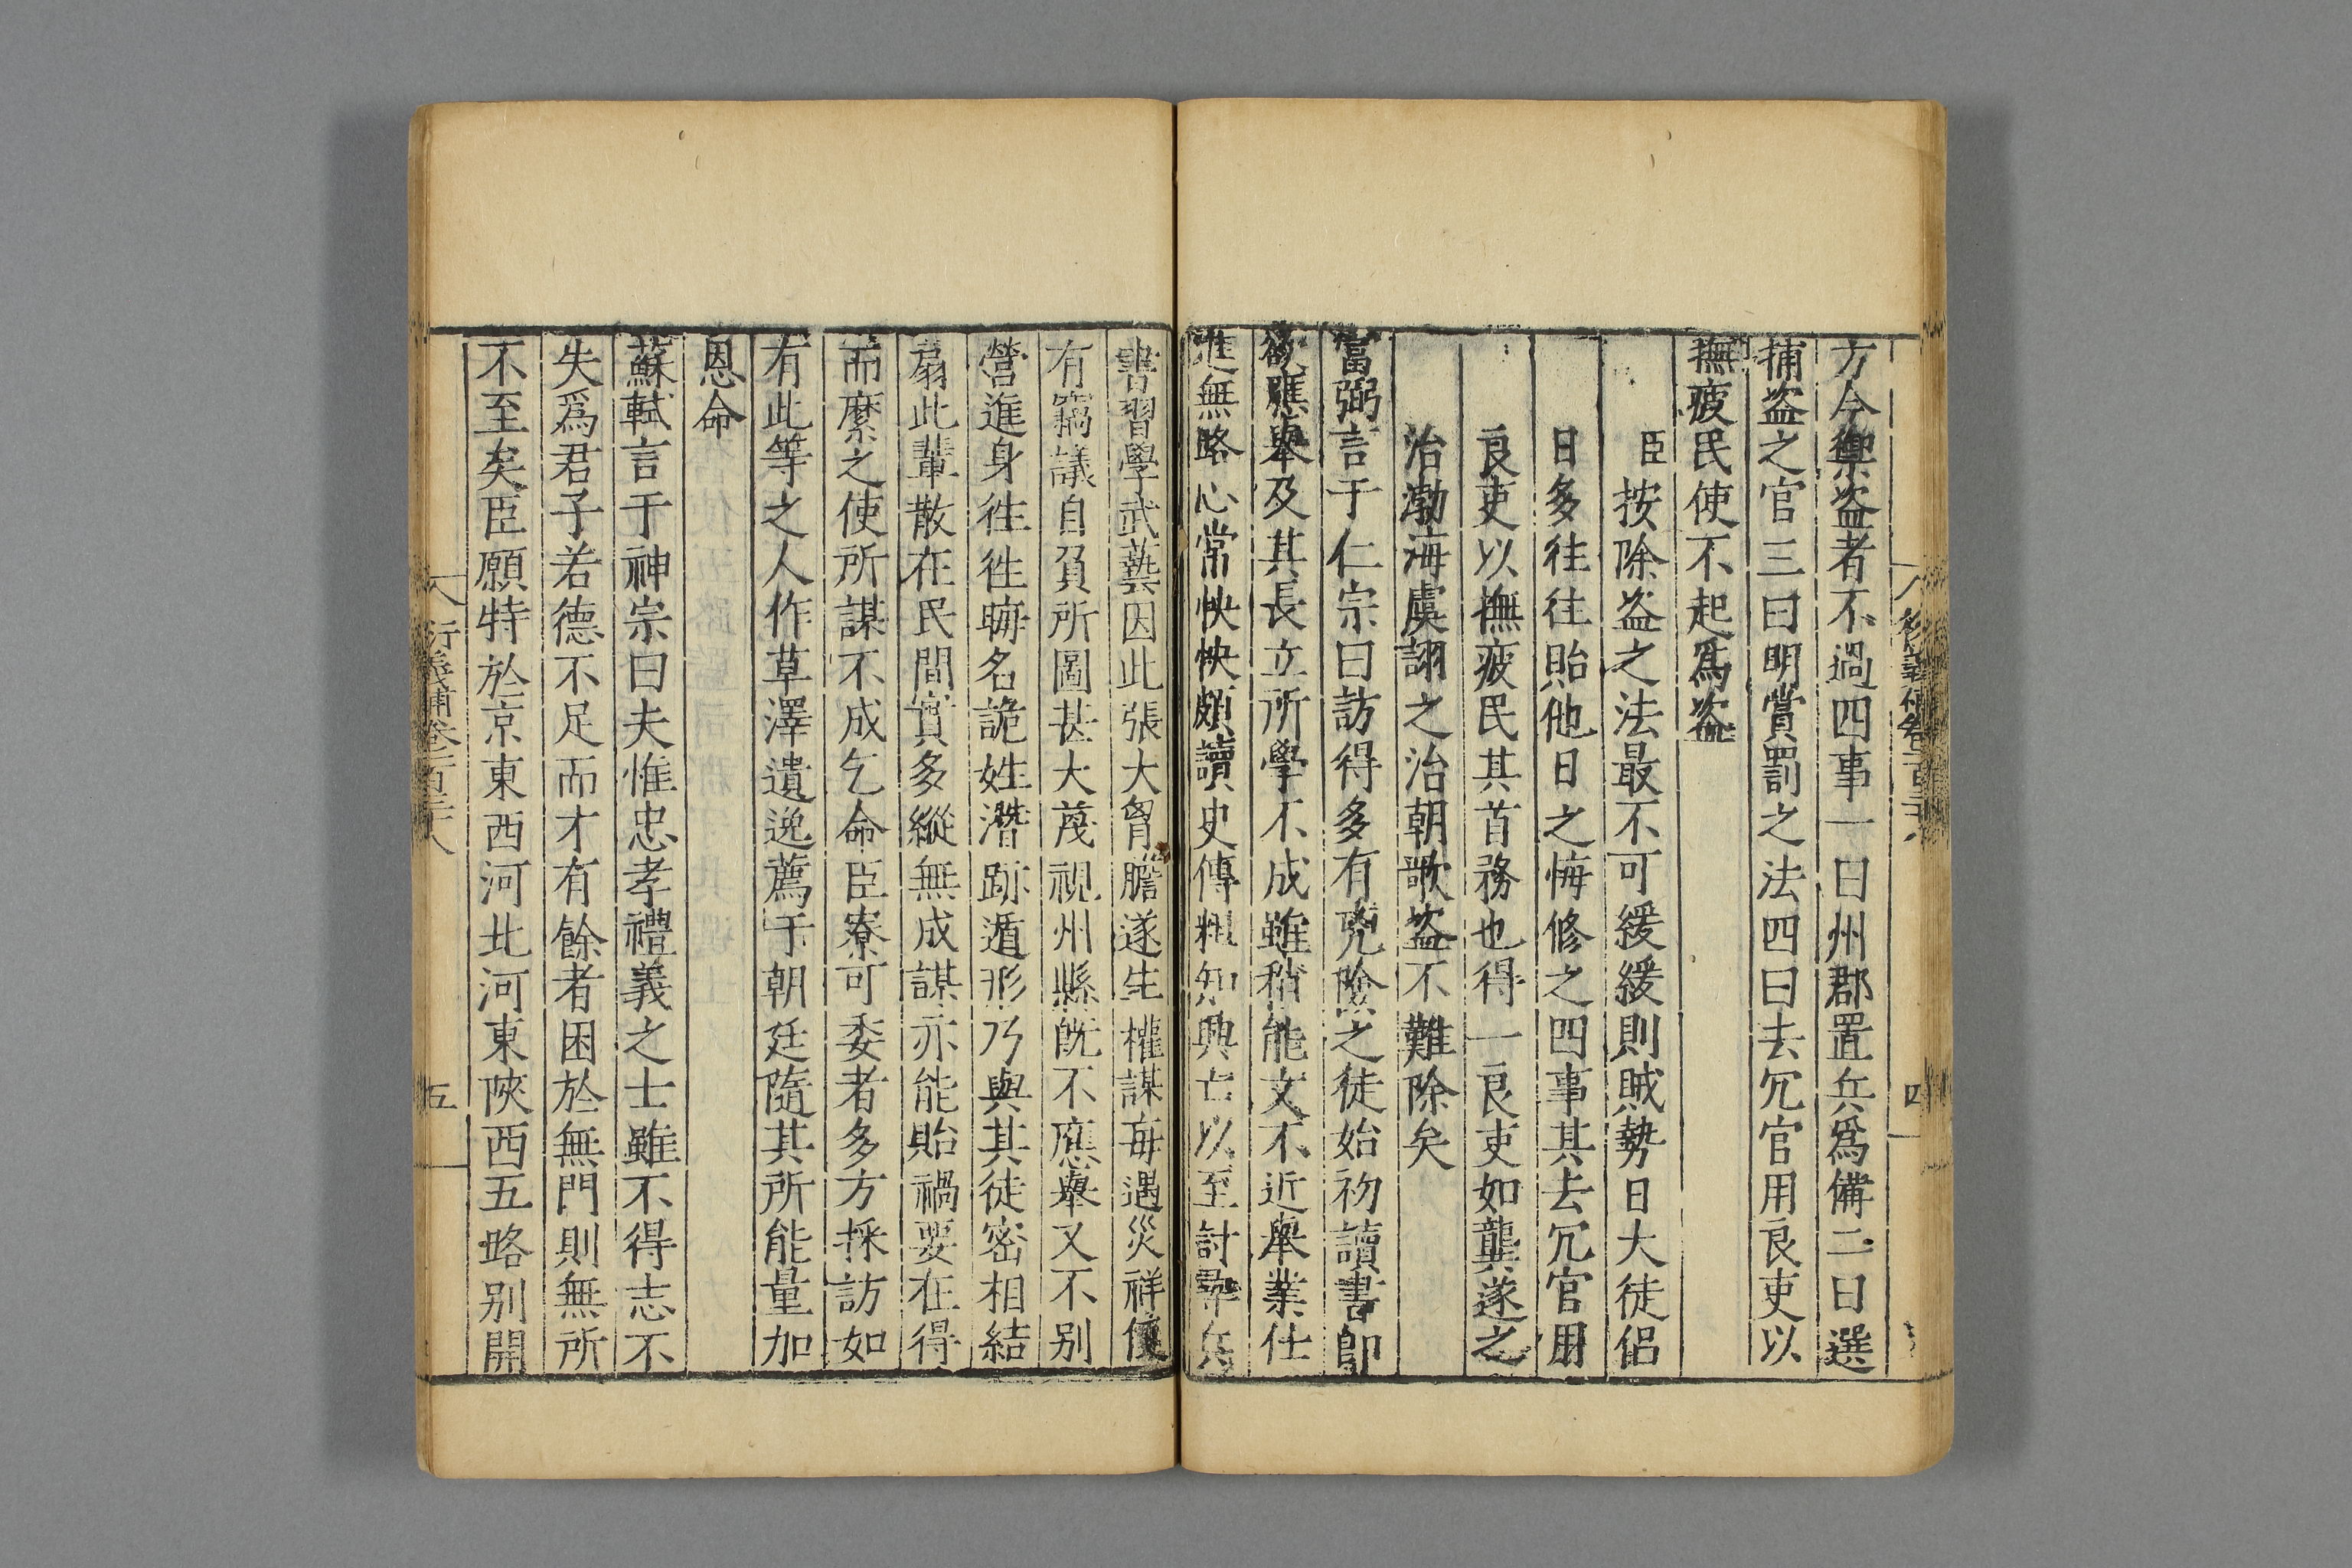 方今禦盗者不過四事一曰州郡置兵爲備二曰選
捕盗之官三曰明賞罰之法四曰去冗官用良吏以
撫疲民使不起爲盗
臣按除盗之法最不可緩緩則賊勢日大徒侣
日多往往貽他日之悔修之四事其去冗官用
良吏以撫疲民其首務也得一良吏如龔遂之
治渤海虞詡之治朝歌盗不難除矣
富弼言于仁宗曰訪得多有兇險之徒始初讀書即
欲應舉及其長立所學不成雖稍能文不近舉業仕
進無路心常怏怏頗讀史傳粗知興亡以至討尋兵
書習學武藝因此張大胷膽遂生權謀每遇災祥便
有竊議自負所圖甚大蔑視州縣旣不應舉又不别
營進身徃徃晦名詭姓潛跡遁形乃與其徒密相結
扇此輩散在民間實多縱無成謀亦能貽禍要在得
而縻之使所謀不成乞命臣寮可委者多方採訪如
有此等之人作草澤遺逸薦于朝廷隨其所能量加
恩命
蘇軾言于神宗曰夫惟忠孝禮義之士雖不得志不
失爲君子若德不足而才有餘者困於無門則無所
不至矣臣願特於京東西河北河東陜西五路别開
衍義補卷一百三十八
五
四